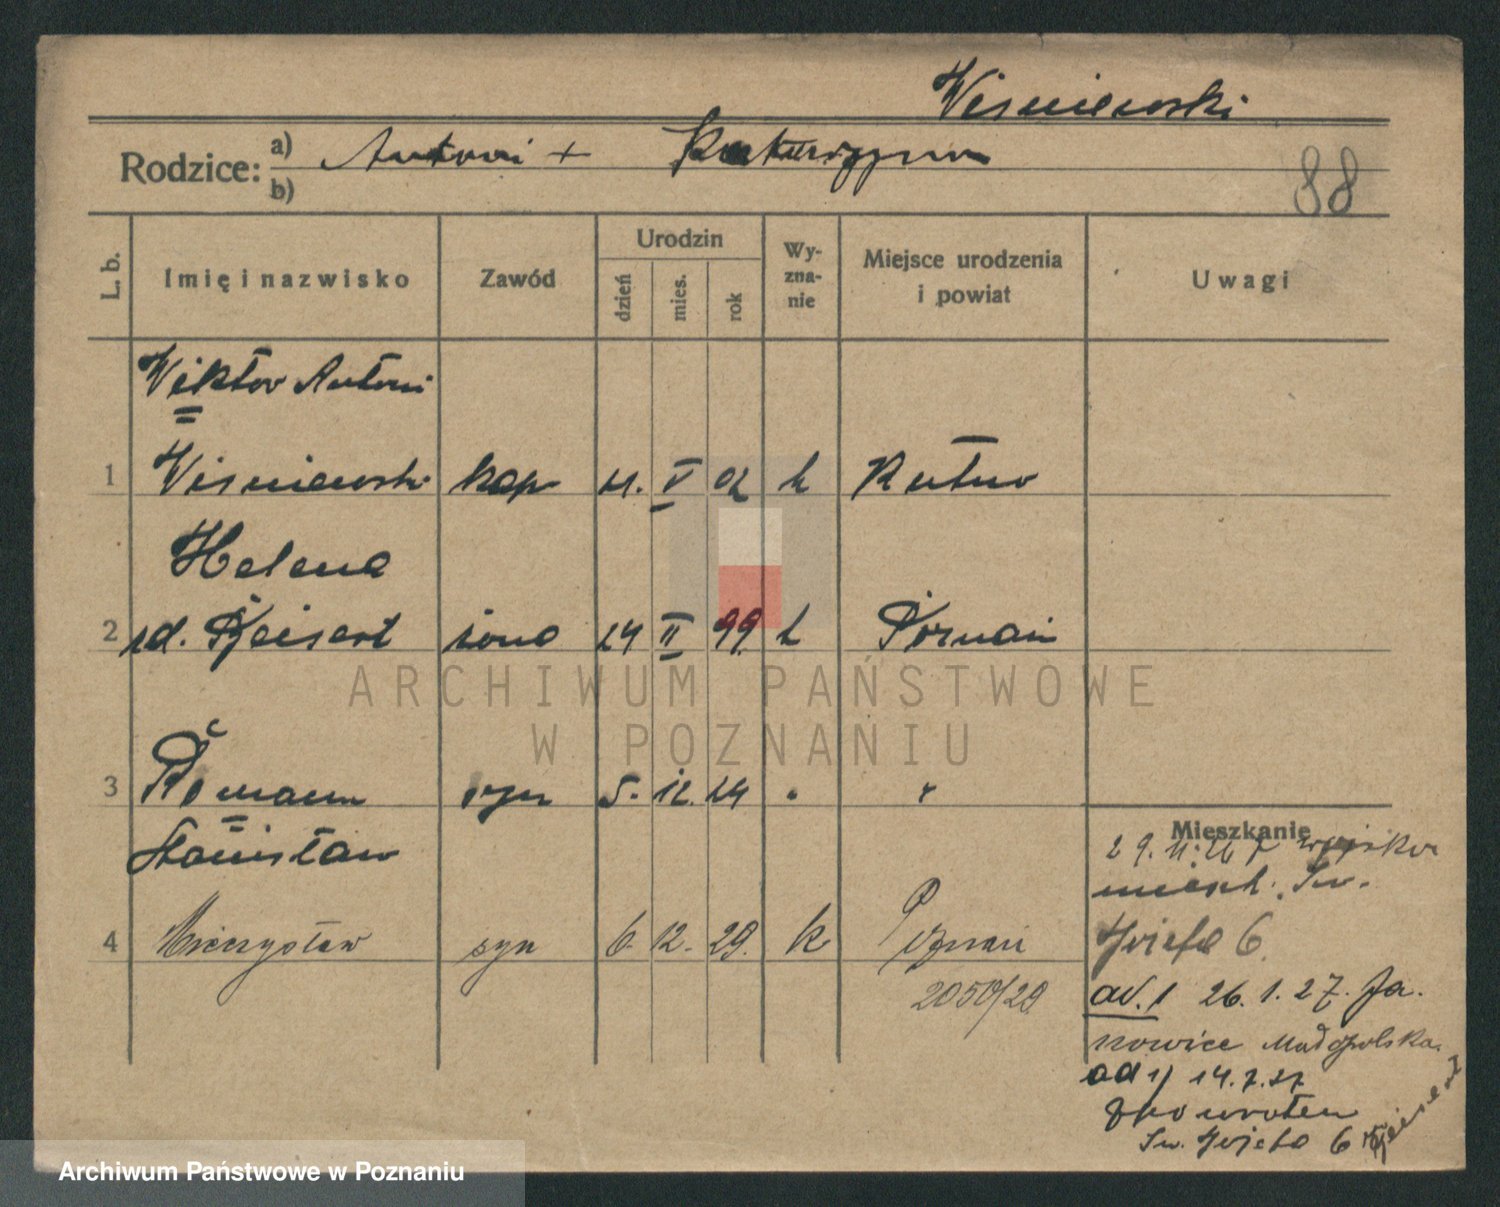 Wisniewski
Rodzice: a) Antoni + Katarzyna
b)
88
L. b.
Imię i nazwisko
Zawód
Urodzin
dzień
mies.
rok
Wy-
zna-
nie
Miejsce urodzenia
i powiat
Uwagi
Wiktor Antoni
1 Wisniewski kap 21. V 02 k Kutno
Helena
2 zd. Kejsert żona 24 II 99. k Poznań
3 Roman syn 5. 12. 24 " "
Stanisław
4 Mieczysław syn 6 12. 29. k Poznań
2050/29
Mieszkanie
29. 11. 26 z wojska
mieszk. Św.
Józefa 6.
ad. 1 26. 1. 27. Ja.
nowice Małopolska.
ad 1) 14. 7. 27
z powrotem
Św. Józefa 6
ARCHIWUM PAŃSTWOWE
W POZNANIU
Archiwum Państwowe w Poznaniu